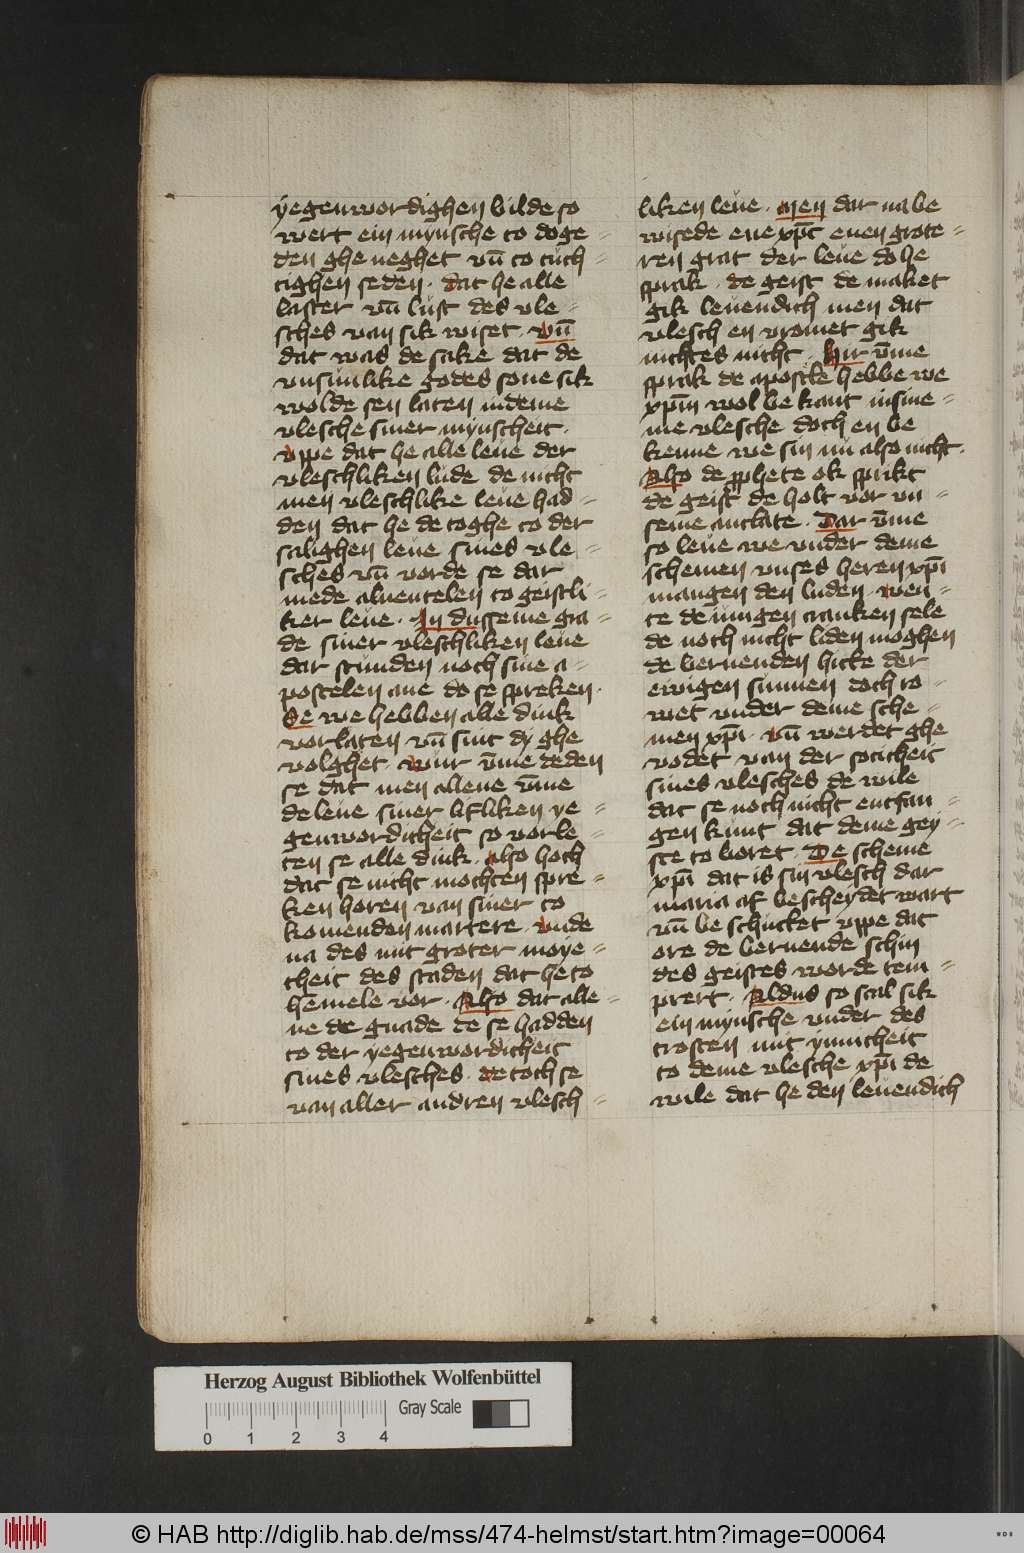 yegenwordighen bilde so
wert ein mynsche to doge-
den ghe neghet vn̄ to tuch-
tighen seden · dat he alle
laster vn̄ lust des vle-
sches van sik wiset · vn̄
dat was de sake dat de
vnsunlike godes sone sik
wolde sen laten in deme
vlesche siner mynscheit ·
vppe dat he alle leue der
vleschliken lude de nicht
men vleschlike leue had-
den dat he de toghe to der
salighen leue sines vle-
sches vn̄ vorde se dar
mede aluentelen to geistli-
ker leue · In dusseme gra-
de siner vleschliken leue
dar stunden noch sine a-
postelen ane do se spreken ·
Se we hebben alle dink
vorlaten vn̄ sint dy ghe
volghet · wur v̄me deden
se dat men allene v̄me
de leue siner lifliken ye-
genwordicheit so vorle-
ten se alle dink · also hoch
dat se nicht mochten spre-
ken horen van siner to
komenden martere · vnde
na des mit groter moye-
cheit des staden dat he to
hemele vor · Also dat alle-
ne de gnade de se hadden
to der yegenwordicheit
sines vlesches · de toch se
van aller andren vlesch-
liken leue · men dar na be
wisede ene xp̄c enen grote-
ren grat der leue do he
sprak · de geist de maket
gik leuendich men dat
vlesch en vromet gik
nichtes nicht · Hir v̄me
sprak de apostele hebbe we
xp̄m wol be kant in sine-
me vlesche doch en be
kenne we sin nu also nicht ·
Also de p̄phete ok sprikt
de geist de holt vor vn-
seme antlate · Dar v̄me
so leue we vnder deme
schemen vnses heren xp̄i
mangen den luden · wen-
te de iungen cranken sele
de noch nicht liden moghen
de bernenden hicke der
ewigen sunnen doch ro-
wet vnder deme sche-
men xp̄i · vn̄ werdet ghe
vodet van der soticheit
sines vlesches de wile
dat se noch nicht entfan-
gen kunt dat deme gey-
ste to boret · De scheme
xp̄i dat is sin vlesch dar
maria af bescheydet wart
vn̄ be schucket vppe dat
ore de bernende schin
des geistes worde tem-
prert · Aldus so scal sik
ein mynsche vnder des
trosten mit ynnicheit
to deme vlesche xp̄i de
wile dat he den leuendich
Herzog August Bibliothek Wolfenbüttel
Gray Scale
0 1 2 3 4
© HAB http://diglib.hab.de/mss/474-helmst/start.htm?image=00064